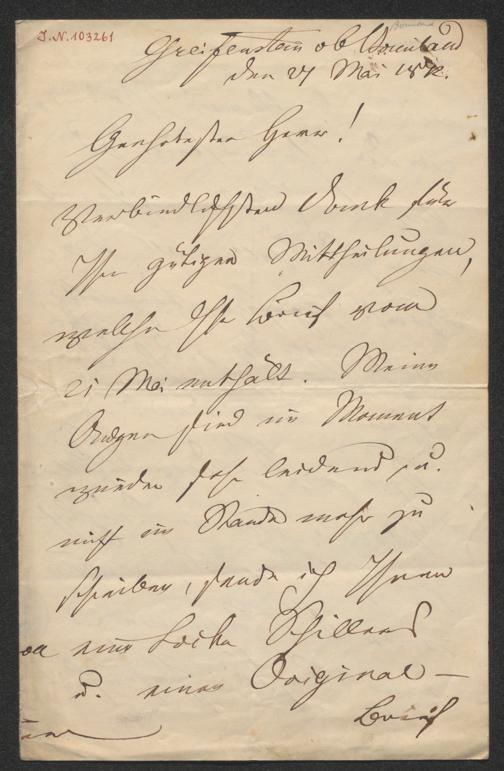 J.N. 103261
Greifenstein ob Bonnland
den 27 Mai 1872.
Geehrtester Herr!
Verbindlichsten Dank für
Ihre gütigen Mittheilungen,
welche Ihr Brief vom
21 Mai enthält. Meine
Augen sind im Moment
wieder sehr leidend, u.
nicht im Stande mehr zu
schreiben, sende ich Ihnen
eine Locke Schillers
u. einen Original-
Brief